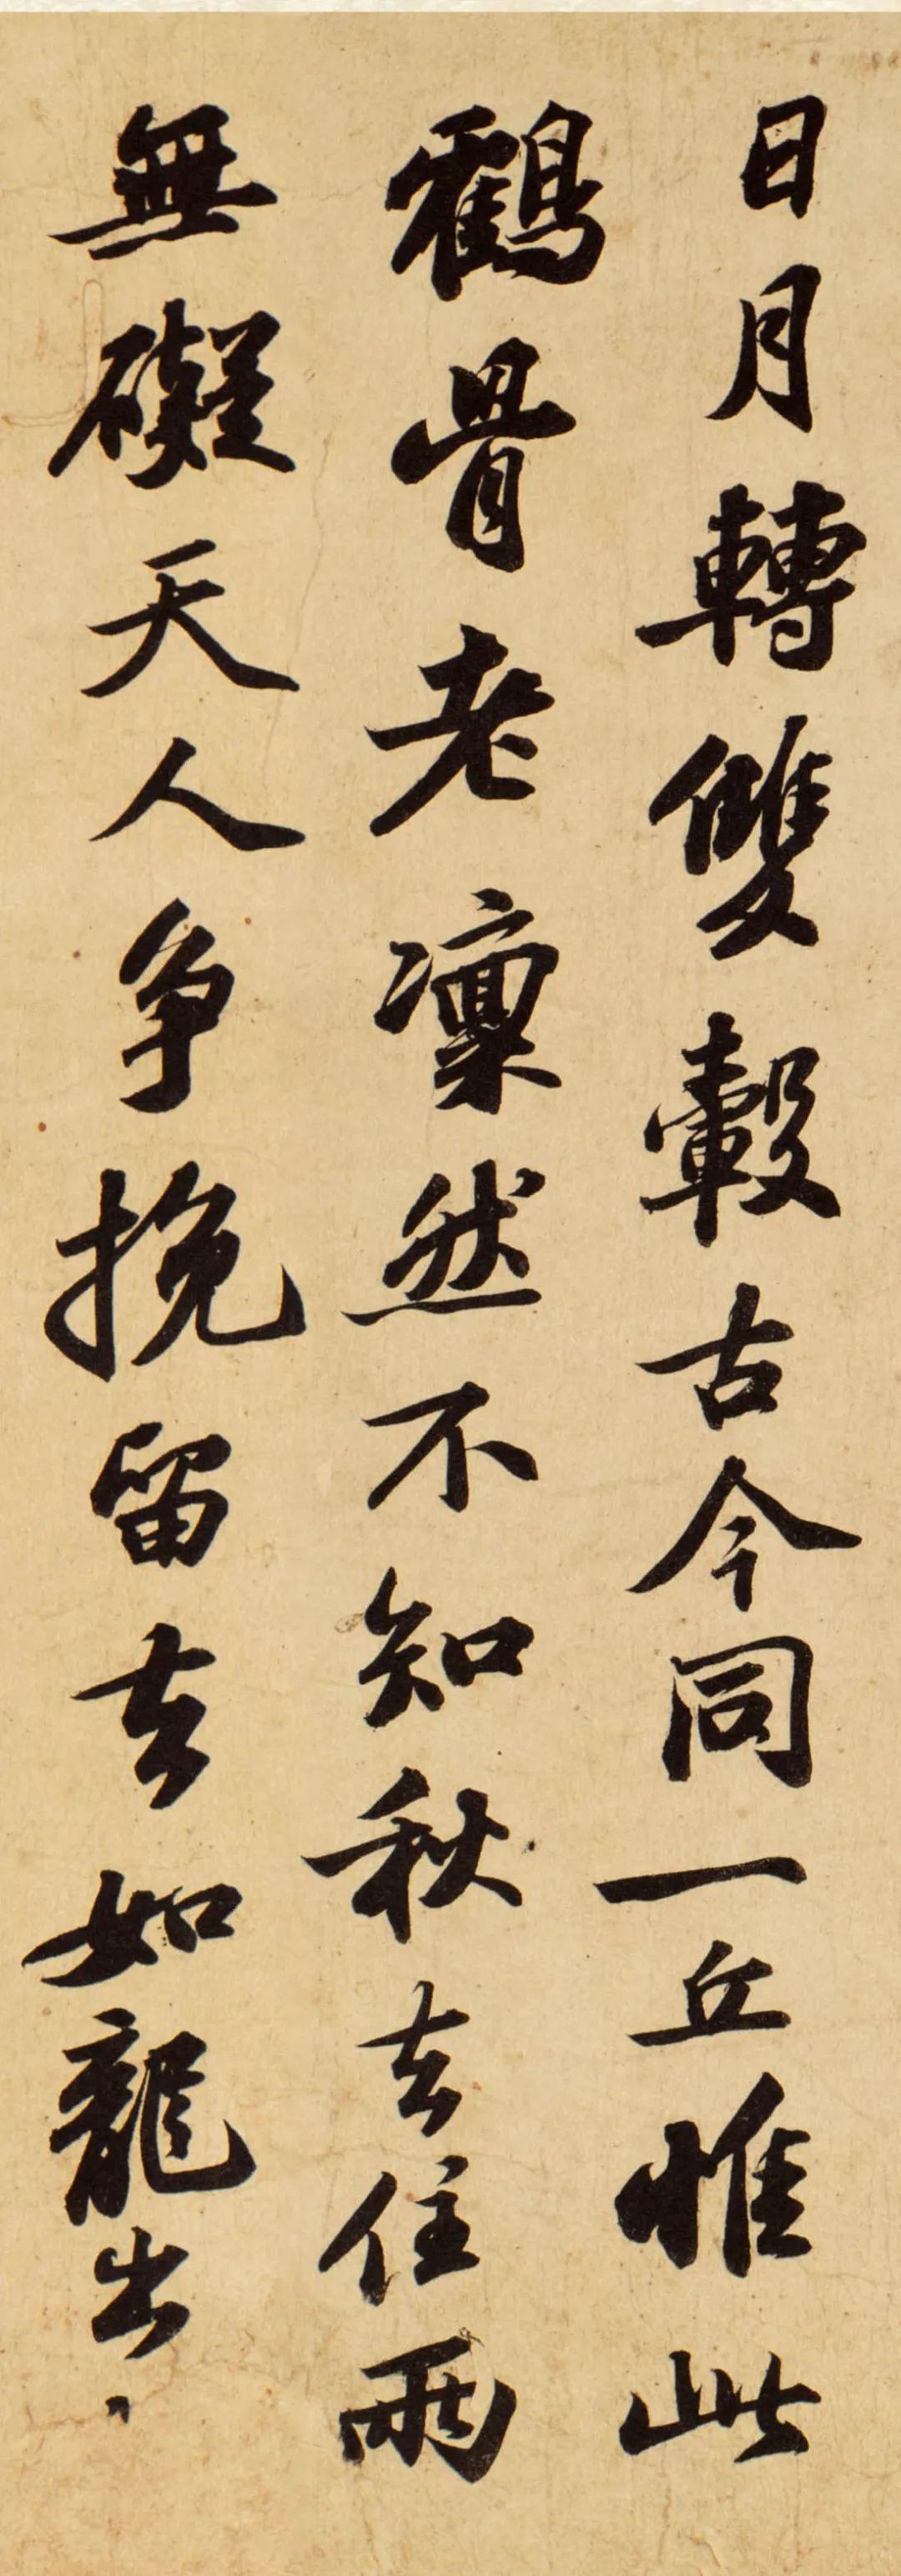 日月轉雙轂古今同一丘惟此
鶴骨老凜然不知秋去住兩
無礙天人爭挽留去如龍出